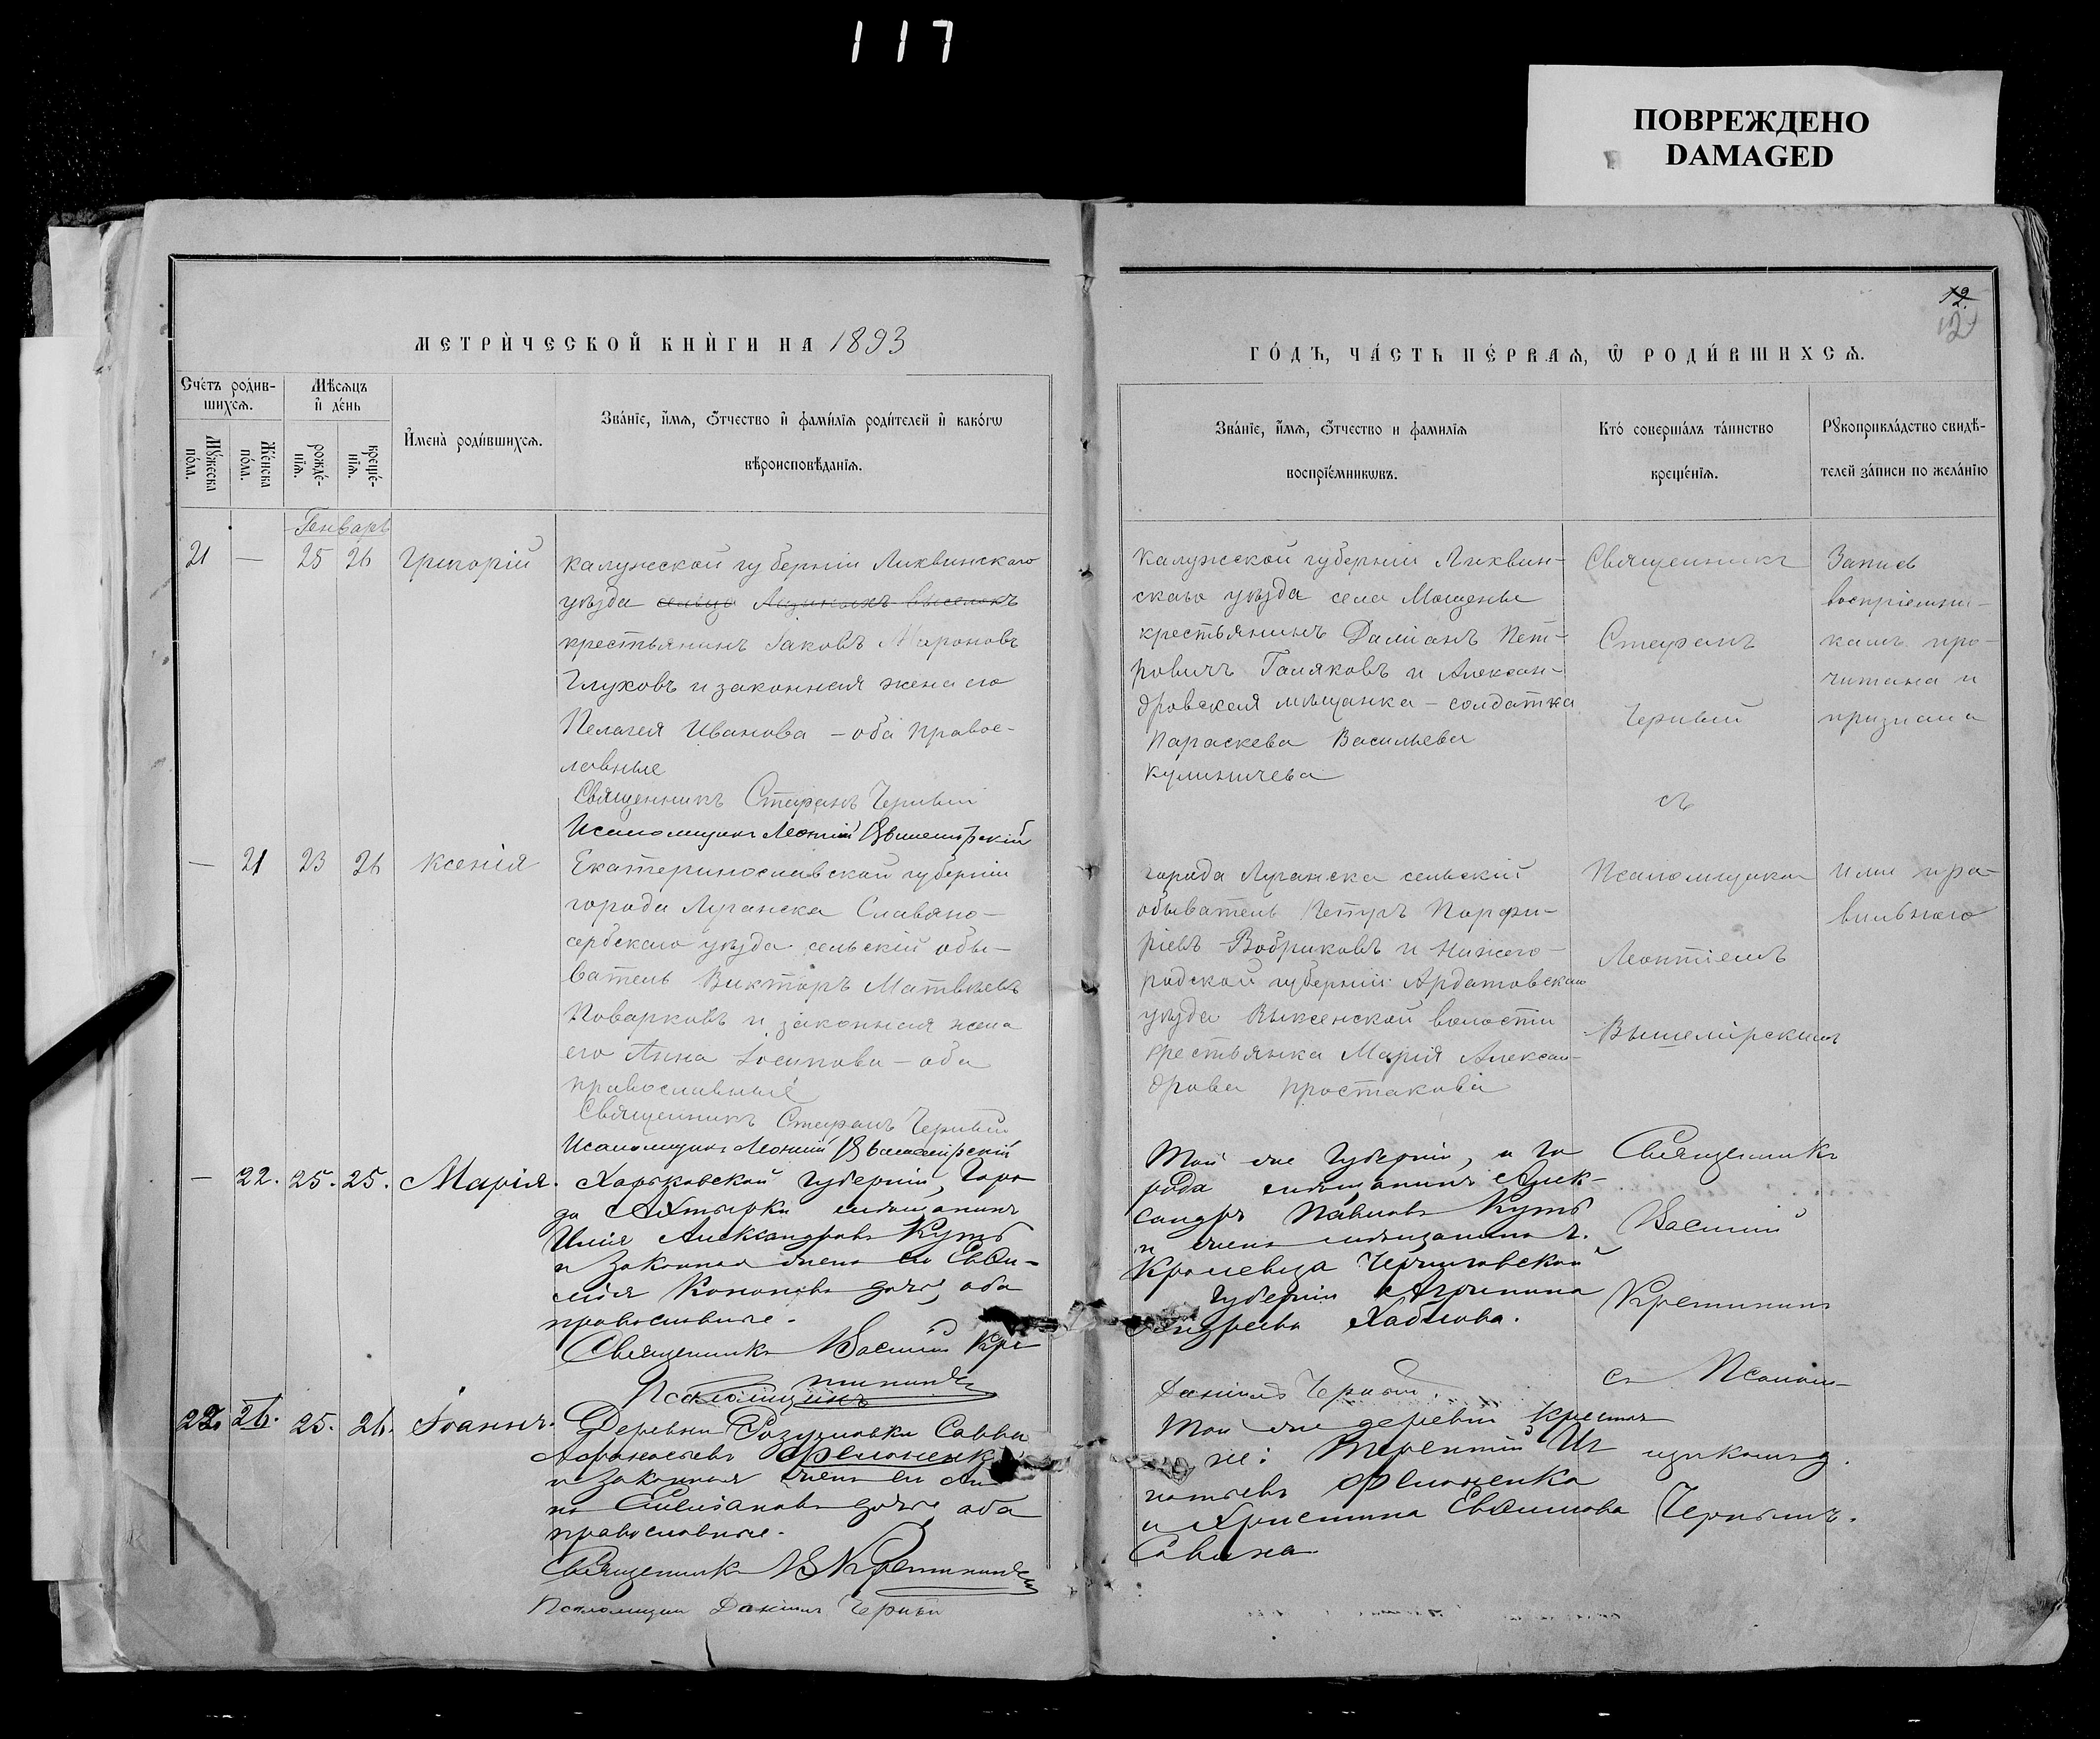 117
ПОВРЕЖДЕНО
DAMAGED
12
12
МЕТРИ́ЧЕСКОЙ КНИ́ГИ НА 1893
ГО́ДЪ, ЧА́СТЬ ПЕ́РВАѦ, Ѿ РОДИ́ВШИХСѦ.
Сче́тъ роди́в-
шихсѧ.
Мѣ́сѧцъ
и҆ де́нь
Мꙋ́жеска по́ла.
Же́нска по́ла.
рожде́-
нїѧ.
креще́-
нїѧ.
И҆мена̀ роди́вшихсѧ.
Зва́нїе, и҆́мѧ, ѻ҆́тчество и҆ фами́лїѧ роди́телей и҆ како́гѡ
вѣроисповѣ́данїѧ.
Зва́нїе, и҆́мѧ, ѻ҆́тчество и фамилїѧ
воспрїе́мникѡвъ.
Кто̀ соверша́лъ та́инство
креще́нїѧ.
Рꙋкоприкла́дство свидѣ́-
телей за́писи по жела́нїю
Генварь
21 — 25 26 Григорій
Калужской губерніи Лихвинскаго
уѣзда сельцо выселокъ
крестьянинъ Іаковъ Мироновъ
Глуховъ и законная жена его
Пелагея Иванова – оба правос-
лавные
Священникъ Стефанъ Черный
Псаломщикъ Леонтій Вышемірскій
Калужской губерніи Лихвин-
скаго уѣзда села Мощенье
крестьянинъ Даміанъ Пет-
ровичъ Галяковъ и Алексан-
дровская мѣщанка – солдатка
Параскева Васильева
Кулиничева
Священникъ
Стефанъ
Черный
съ
Запись
воспріемни-
камъ про-
читана и
признана
— 21 23 26 Ксенія
Екатеринославской губерніи
города Луганска Славяно-
сербскаго уѣзда сельскій обы-
ватель Викторъ Матвѣевъ
Поварковъ и законная жена
его Анна Іосипова – оба
православные
Священникъ Стефанъ Черный
Псаломщикъ Леонтій Вышемірскій
города Луганска сельскій
обыватель Петръ Порфи-
ріевъ Бобриковъ и Нижего-
родской губерніи Ардатовскаго
уѣзда Выксенской волости
крестьянка Марія Алексан-
дрова Простакова
Псаломщикомъ
Леонтіемъ
Вышемірскимъ
ими пра-
вильною
— 22. 25. 25. Марія.
Харьковской губерніи, горо
да Ахтырки мѣщанинъ
Илія Александровъ Кутъ
и законная жена его Евѳи-
мія Кононова дочь, оба
православные.
Священникъ Василій Кре
тининъ
Псаломщикъ
Той же губерніи, и го
рода мѣщанинъ Алек-
сандръ Павловъ Кутъ
и жена мѣщанина г.
Кролевца Черниговской
губерніи Агрипина
Андреева Хаблова.
Даніилъ Черный.
Священникъ
Василій
Кретининъ
съ Псалом-
22. 26. 25. 26. Іоаннъ.
Деревни Разумовки Савва
Аѳанасьевъ Филоненк
и законная жена его Ан
на дочь, оба
православные.
Священникъ В Кретининъ
Псаломщикъ Даніилъ Черный
Той же деревни крестья
не: Терентій Иг
натьевъ Филоненко
и Христина Евѳимова
Савина
щикомъ Д.
Чернымъ.